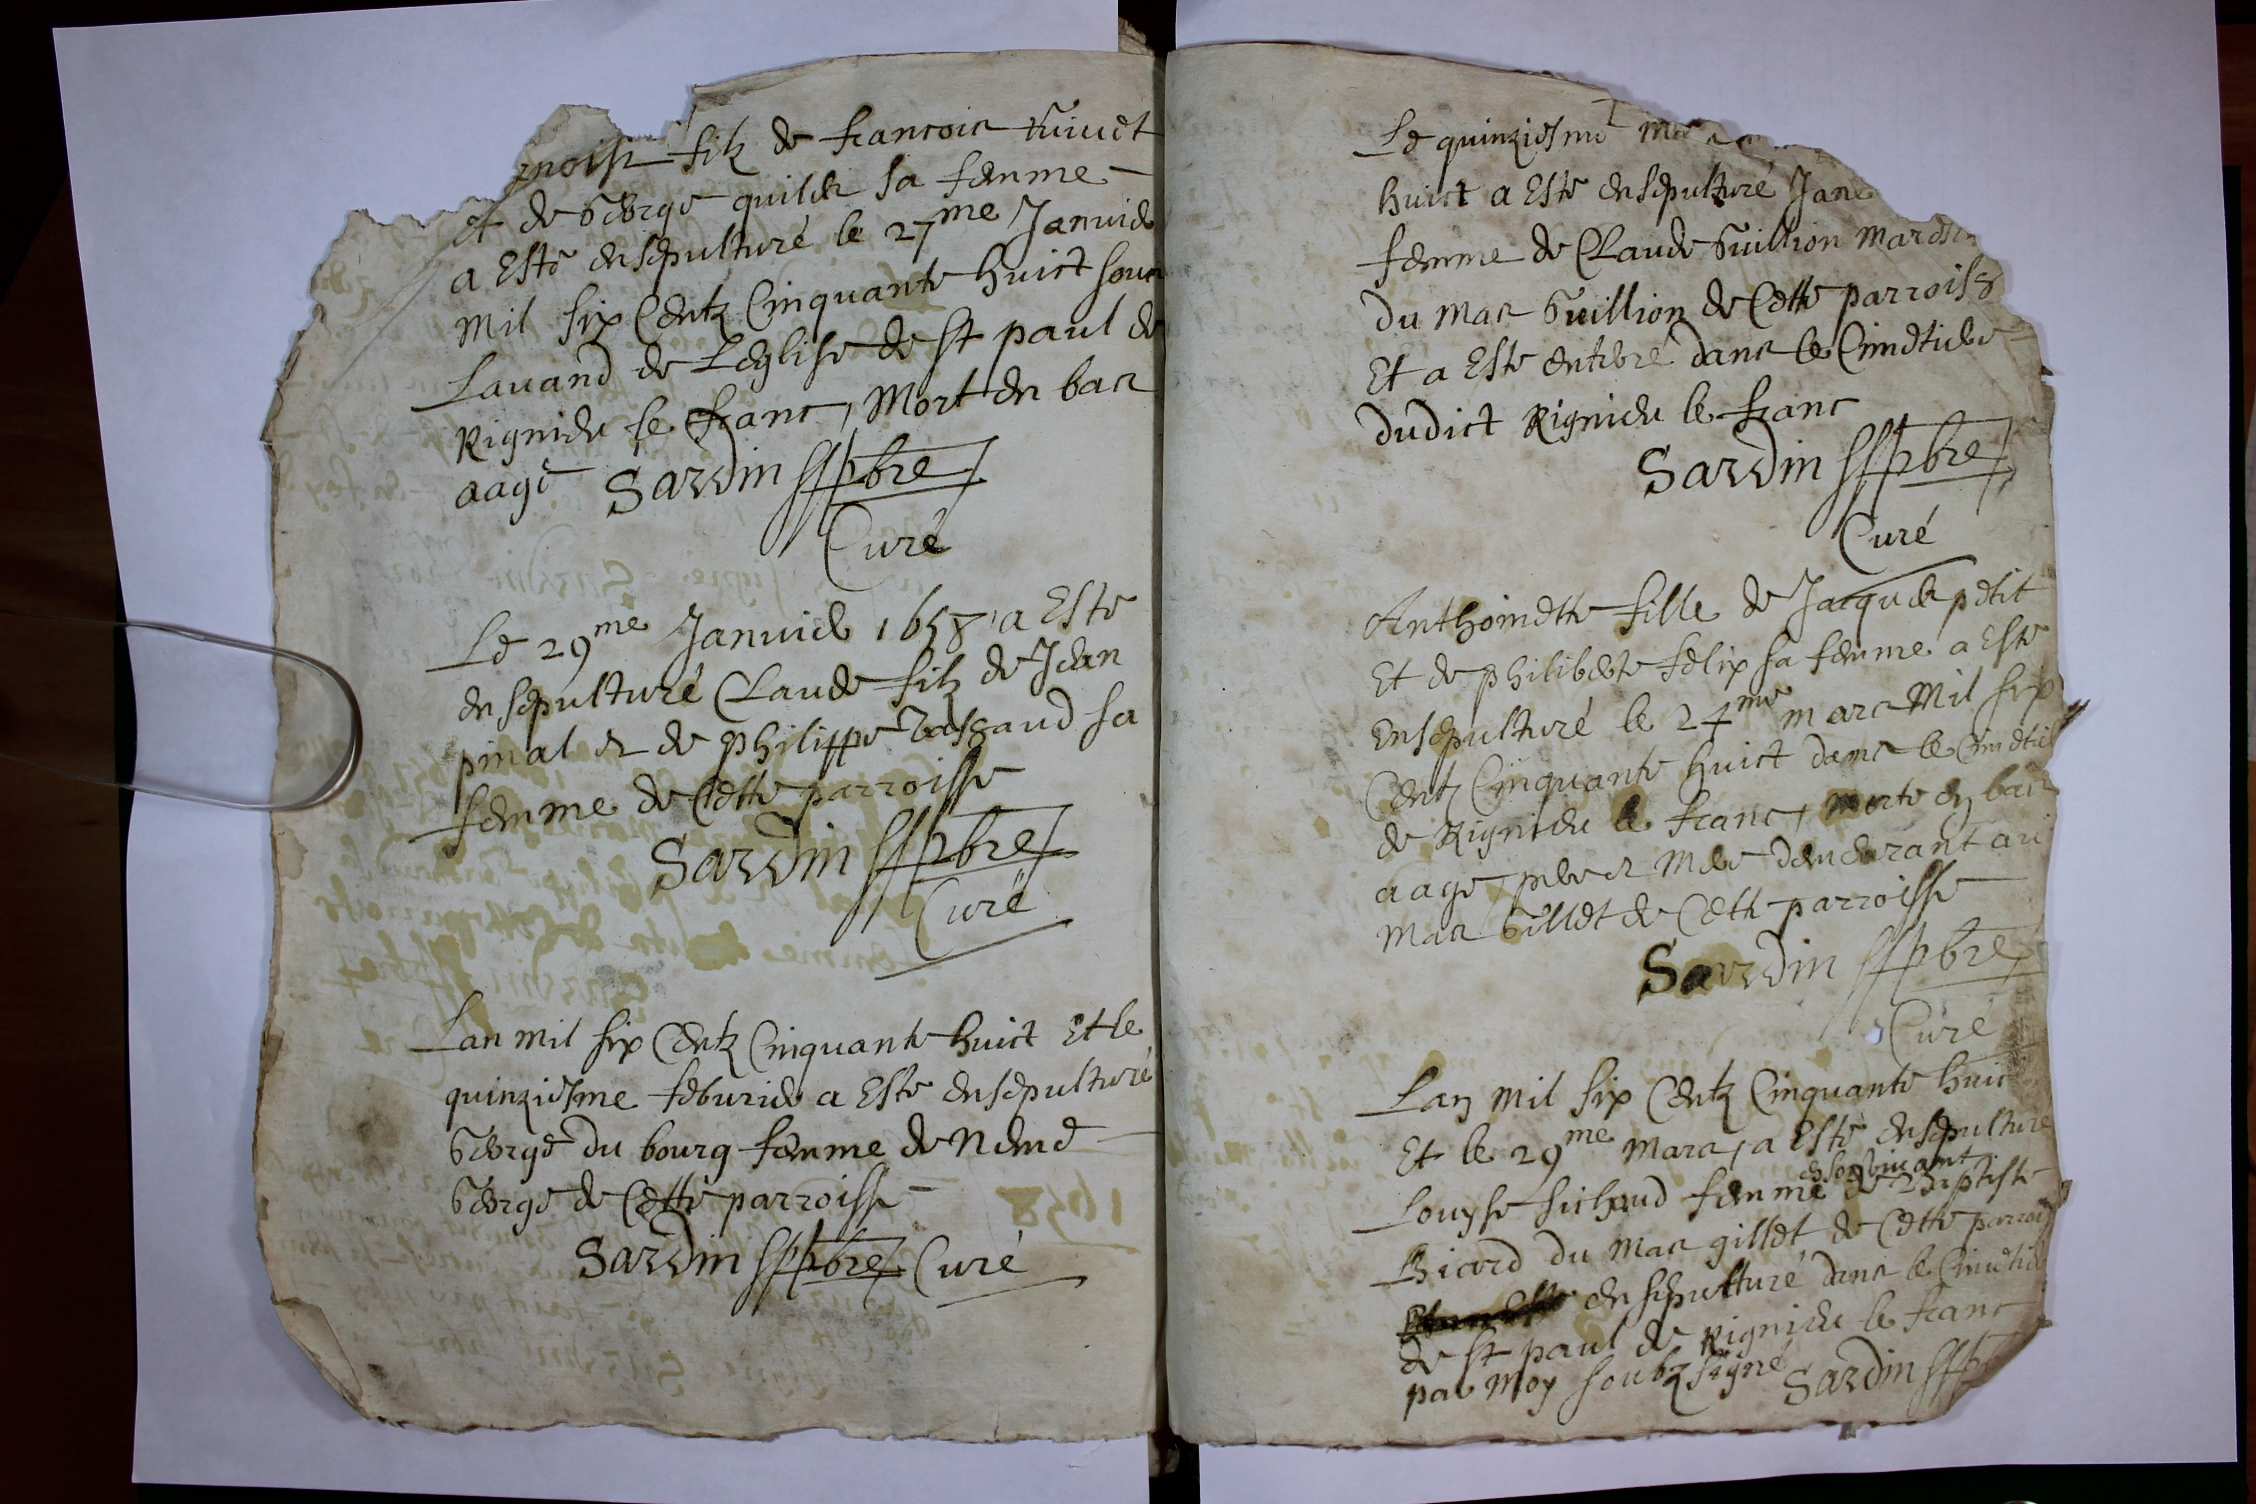 filz de francois
et de George sa femme
a Esté ensepulturé le 27me Januier
mil six Centz Cinquante huict soub
Lauand de Leglise de st paul de
Rignieu le franc, Mort en bas
aagé Sardin pbre
Curé
Le 29me Januier 1658 a Esté
ensepulturé Claude filz de Jean
pinal et de philippe sa
femme de Cette parroisse
Sardin pbre
Curé
Lan mil six Centz Cinquante huict Et le
quinziesme feburier a Esté ensepulturé
George du bourg femme de
George de Cette parroisse
Sardin pbre Curé
Le quinziesme
huict a Esté ensepulturé Jane
femme de Claude Guillion
du mas Guillion de Cette parroisse
Et a Esté enterré dans le Cimetiere
dudict Rignieu le franc
Sardin pbre
Curé
Anthoinette fille de Jacques petit
Et de philiberte felix sa femme a Esté
Ensepulturé le 24me mars Mil six
Centz Cinquante huict dans le Cimetie
de Rignieu le franc, morte en bas
aage, pere et Mere demeurant au
mas Gillet de Cette parroisse
Sardin pbre
Curé
Lan mil six Centz Cinquante huic
Et le 29me mars, a Esté ensepulturé
en son viuant
Louyse femme de Baptiste
Bicard du mas gillet de Cette parrois
ensepulturé dans le Cimetie
de st paul de Rignieu le franc
par Moy soubzsigné Sardin